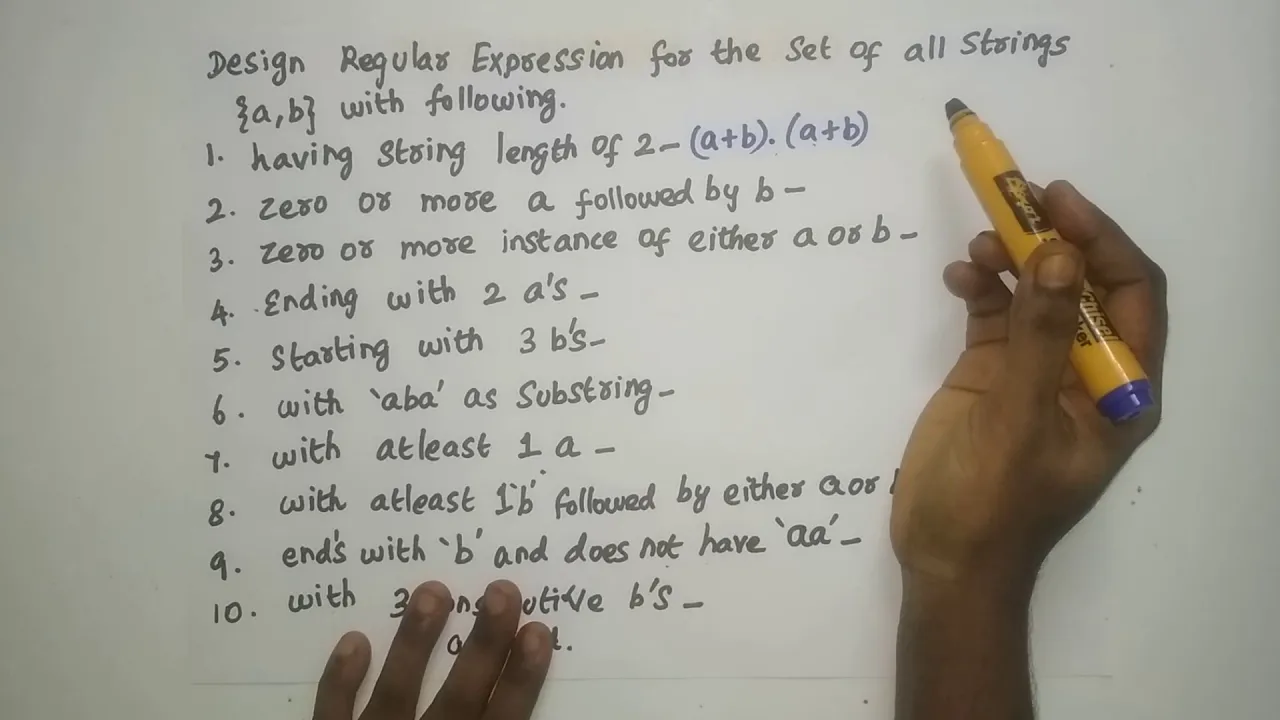 Design Regular Expression for the set of all strings
{a,b} with following.
1. having string length of 2 - (a+b).(a+b)
2. zero or more a followed by b -
3. zero or more instance of either a or b -
4. Ending with 2 a's -
5. starting with 3 b's -
6. with `aba' as Substring -
7. with atleast 1 a -
8. with atleast 1`b' followed by either a or
9. end's with `b' and does not have `aa' -
10. with b's -